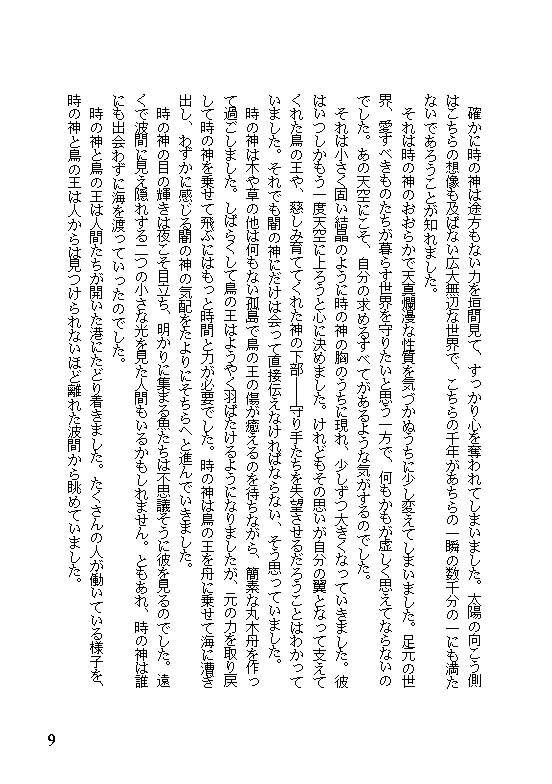 確かに時の神は途方もない力を垣間見て、すっかり心を奪われてしまいました。太陽の向こう側
はこちらの想像も及ばない広大無辺な世界で、こちらの千年があちらの一瞬の数千分の一にも満た
ないであろうことが知れました。
それは時の神のおおらかで天真爛漫な性質を気づかぬうちに少し変えてしまいました。足元の世
界、愛すべきものたちが暮らす世界を守りたいと思う一方で、何もかもが虚しく思えてならないの
でした。あの天空にこそ、自分の求めるすべてがあるような気がするのでした。
それは小さく固い結晶のように時の神の胸のうちに現れ、少しずつ大きくなっていきました。彼
はいつしかもう一度天空に上ろうと心に決めました。けれどもその思いが自分の翼となって支えて
くれた鳥の王や、慈しみ育ててくれた神の下部――守り手たちを失望させるだろうことはわかって
いました。それでも闇の神にだけは会って直接伝えなければならない、そう思っていました。
時の神は木や草の他は何もない孤島で鳥の王の傷が癒えるのを待ちながら、簡素な丸木舟を作っ
て過ごしました。しばらくして鳥の王はようやく羽ばたけるようになりましたが、元の力を取り戻
して時の神を乗せて飛ぶにはもっと時間と力が必要でした。時の神は鳥の王を舟に乗せて海に漕ぎ
出し、わずかに感じる闇の神の気配をたよりにそちらへと進んでいきました。
時の神の目の輝きは夜こそ目立ち、明かりに集まる魚たちは不思議そうに彼を見るのでした。遠
くで波間に見え隠れする二つの小さな光を見た人間もいるかもしれません。ともあれ、時の神は誰
にも出会わずに海を渡っていったのでした。
時の神と鳥の王は人間たちが開いた港にたどり着きました。たくさんの人が働いている様子を、
時の神と鳥の王は人からは見つけられないほど離れた波間から眺めていました。
9